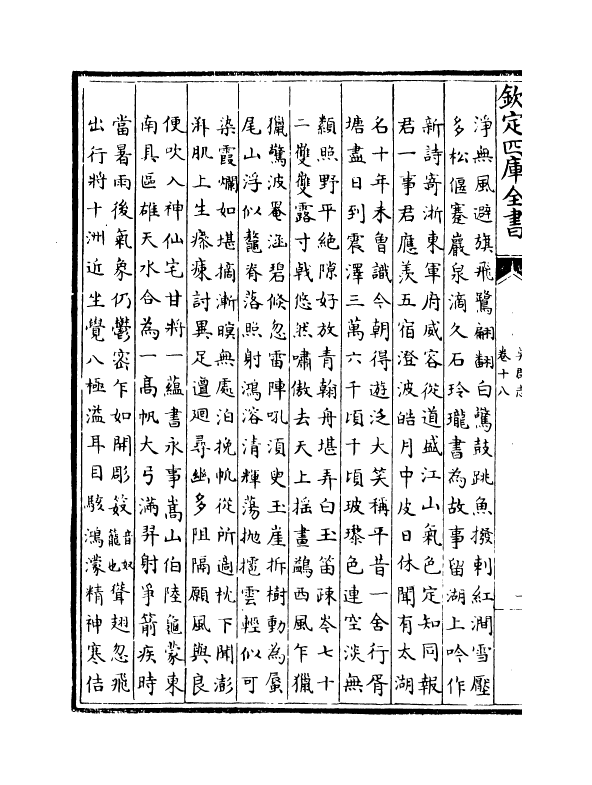 欽定四庫全書
卷十八
淨無風避旗飛鷺翩翻白驚鼓跳魚撥剌紅澗雪壓
多松偃蹇巖泉滴久石玲瓏書為故事留湖上吟作
新詩寄浙東軍府威容從道盛江山氣色定知同報
君一事君應羨五宿澄波皓月中皮日休聞有太湖
名十年未曾識今朝得遊泛大笑稱平昔一舍行胥
塘盡日到震澤三萬六千頃千頃玻瓈色連空淡無
纇照野平絶隙好放青翰舟堪弄白玉笛疎岑七十
二雙雙露寸㦸悠然嘯傲去天上揺畫鷁西風乍獵
獵驚波罨涵碧倐忽雷陣吼須臾玉崖拆樹動為蜃
尾山浮似鼇脊落照射鴻溶清輝蕩抛雲輕似可
染霞爛如堪摘漸暝無處泊挽帆從所適枕下聞澎
湃肌上生瘮㾕討異足邅廻尋幽多阻隔願風與良
便吹入神仙宅甘將一藴書永事嵩山伯陸龜蒙東
南具區雄天水合為一髙帆大弓滿羿射爭箭疾時
當暑雨後氣象仍鬱密乍如開彫笯音奴籠也聳翅忽飛
出行將十洲近坐覺八極溢耳目駭鴻濛精神寒佶